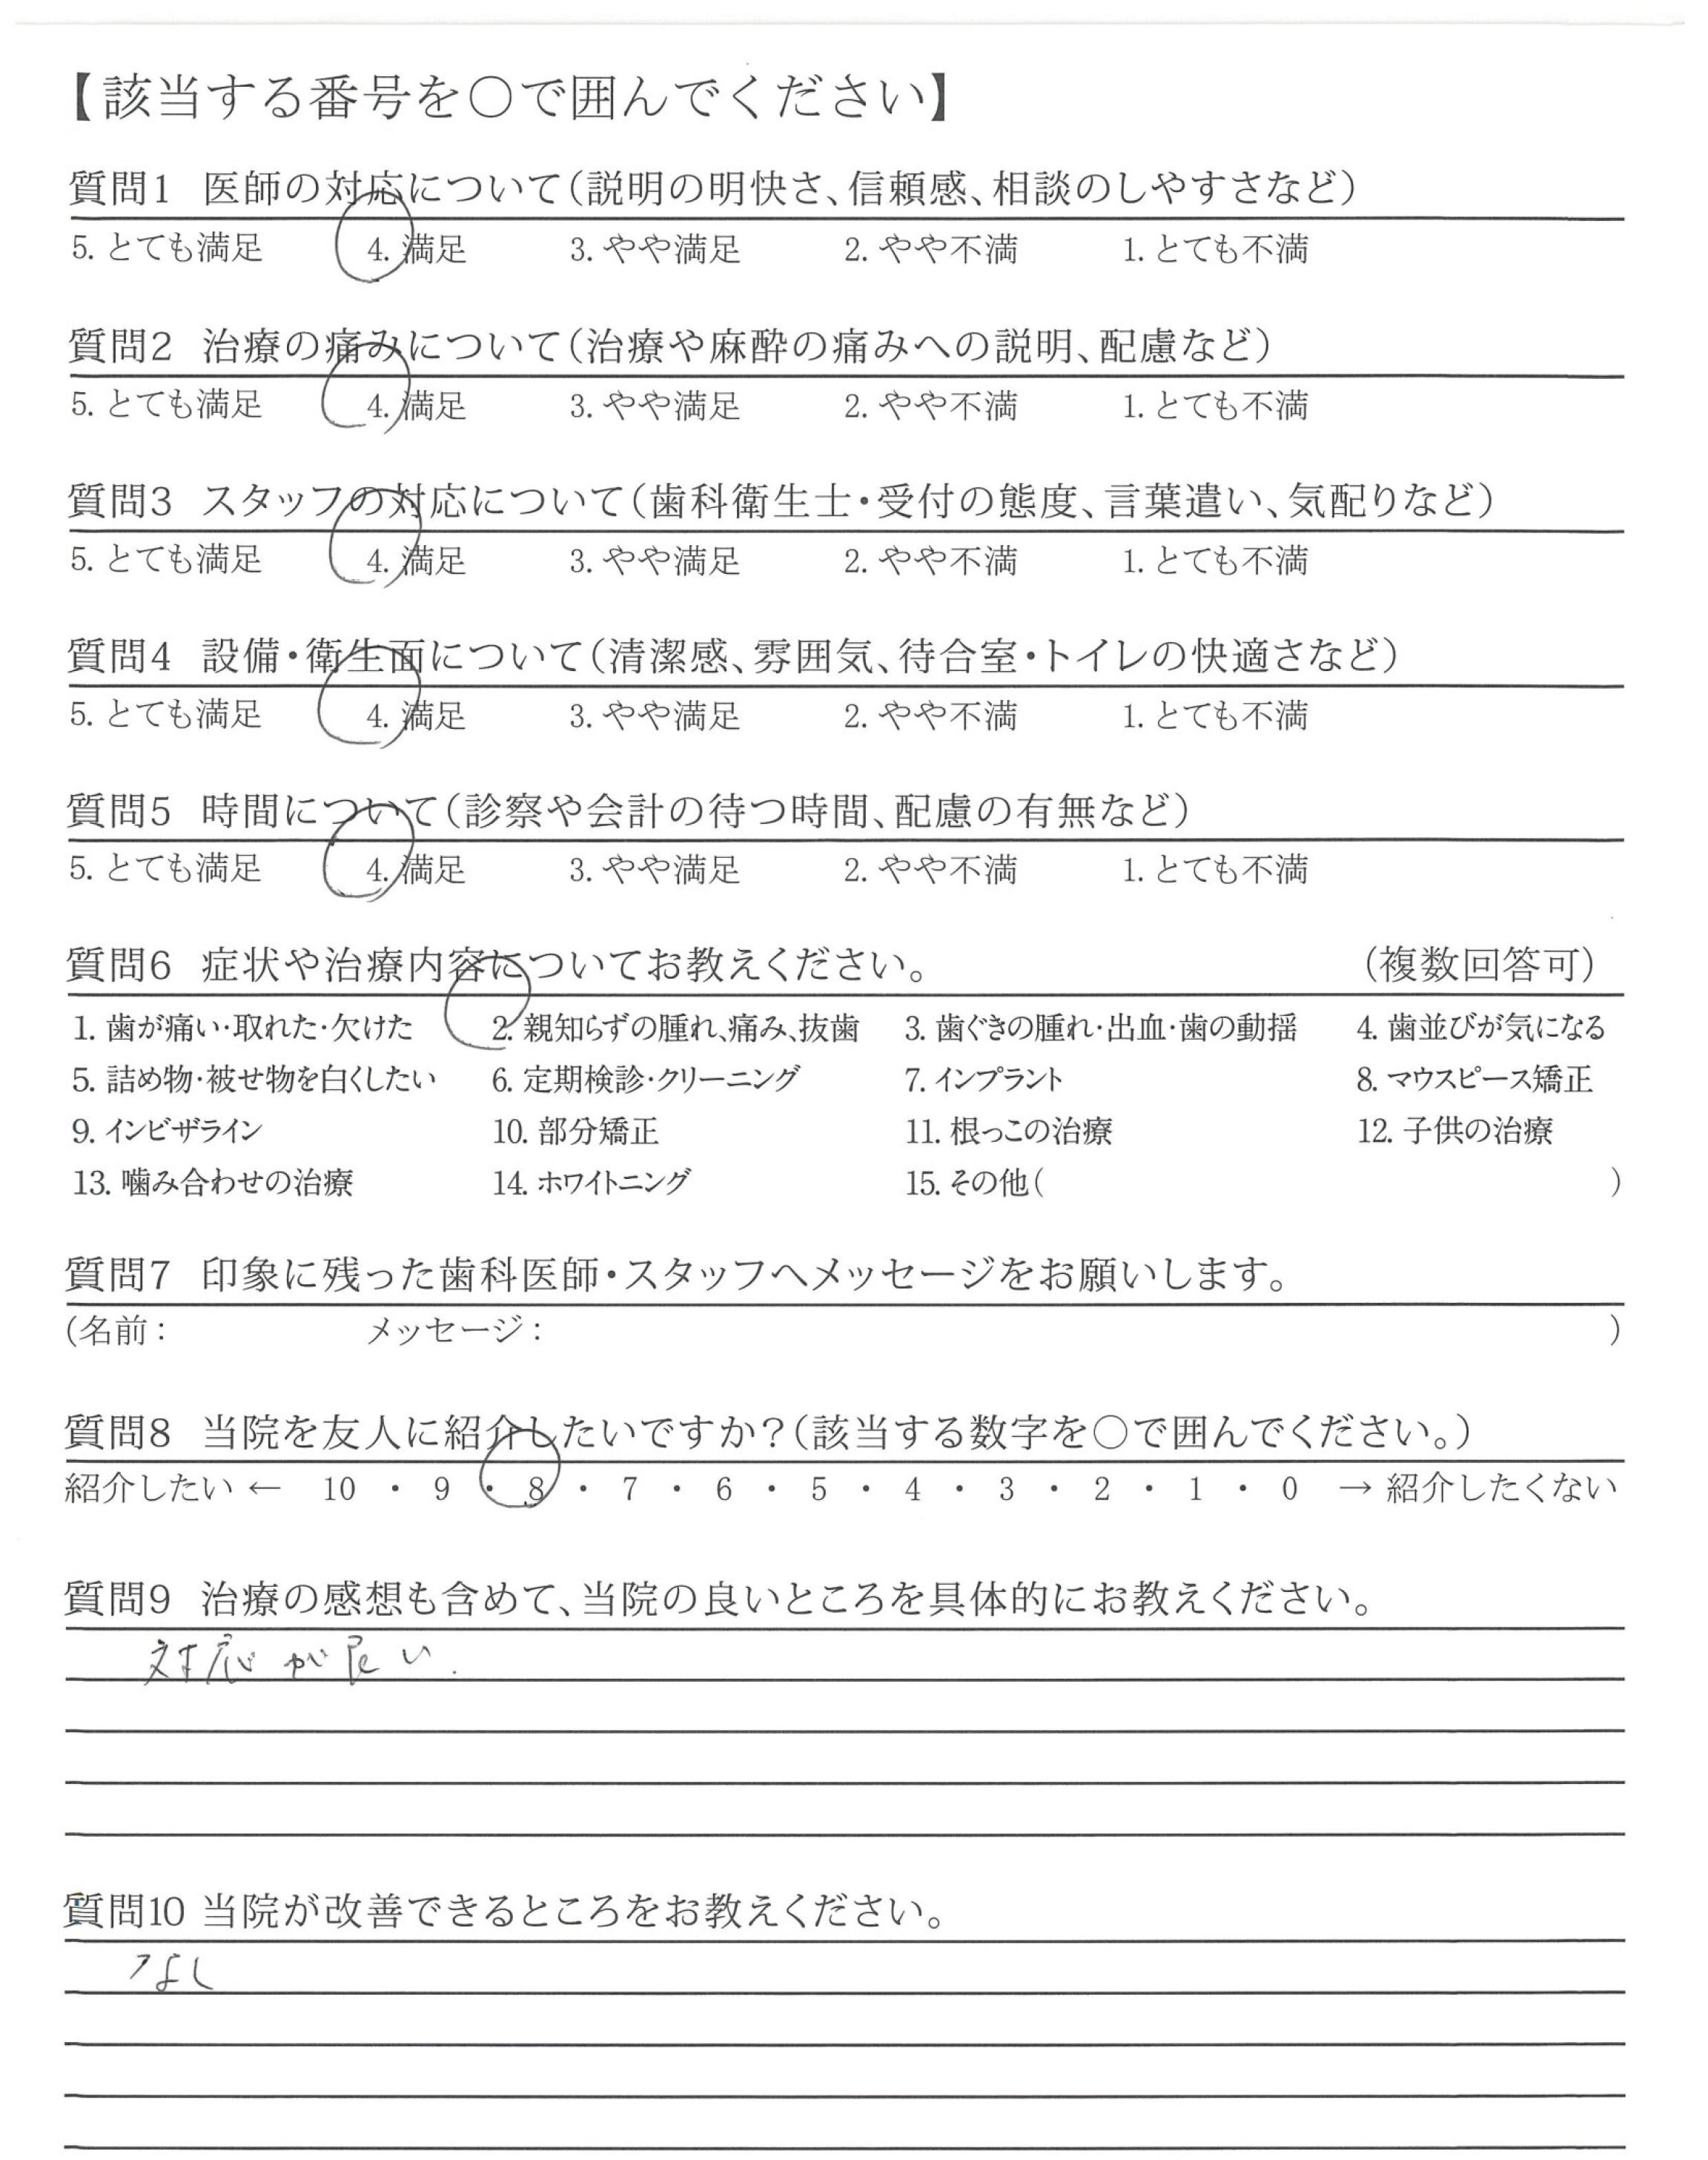 【該当する番号を○で囲んでください】
質問1 医師の対応について(説明の明快さ、信頼感、相談のしやすさなど)
5. とても満足 4. 満足 3. やや満足 2. やや不満 1. とても不満
質問2 治療の痛みについて(治療や麻酔の痛みへの説明、配慮など)
5. とても満足 4. 満足 3. やや満足 2. やや不満 1. とても不満
質問3 スタッフの対応について(歯科衛生士・受付の態度、言葉遣い、気配りなど)
5. とても満足 4. 満足 3. やや満足 2. やや不満 1. とても不満
質問4 設備・衛生面について(清潔感、雰囲気、待合室・トイレの快適さなど)
5. とても満足 4. 満足 3. やや満足 2. やや不満 1. とても不満
質問5 時間について(診察や会計の待つ時間、配慮の有無など)
5. とても満足 4. 満足 3. やや満足 2. やや不満 1. とても不満
質問6 症状や治療内容についてお教えください。 (複数回答可)
1. 歯が痛い・取れた・欠けた 2. 親知らずの腫れ、痛み、抜歯 3. 歯ぐきの腫れ・出血・歯の動揺 4. 歯並びが気になる
5. 詰め物・被せ物を白くしたい 6. 定期検診・クリーニング 7. インプラント 8. マウスピース矯正
9. インビザライン 10. 部分矯正 11. 根っこの治療 12. 子供の治療
13. 噛み合わせの治療 14. ホワイトニング 15. その他( )
質問7 印象に残った歯科医師・スタッフへメッセージをお願いします。
(名前: メッセージ: )
質問8 当院を友人に紹介したいですか?(該当する数字を○で囲んでください。)
紹介したい ← 10 ・ 9 ・ 8 ・ 7 ・ 6 ・ 5 ・ 4 ・ 3 ・ 2 ・ 1 ・ 0 → 紹介したくない
質問9 治療の感想も含めて、当院の良いところを具体的にお教えください。
対応が良い.
質問10 当院が改善できるところをお教えください。
なし